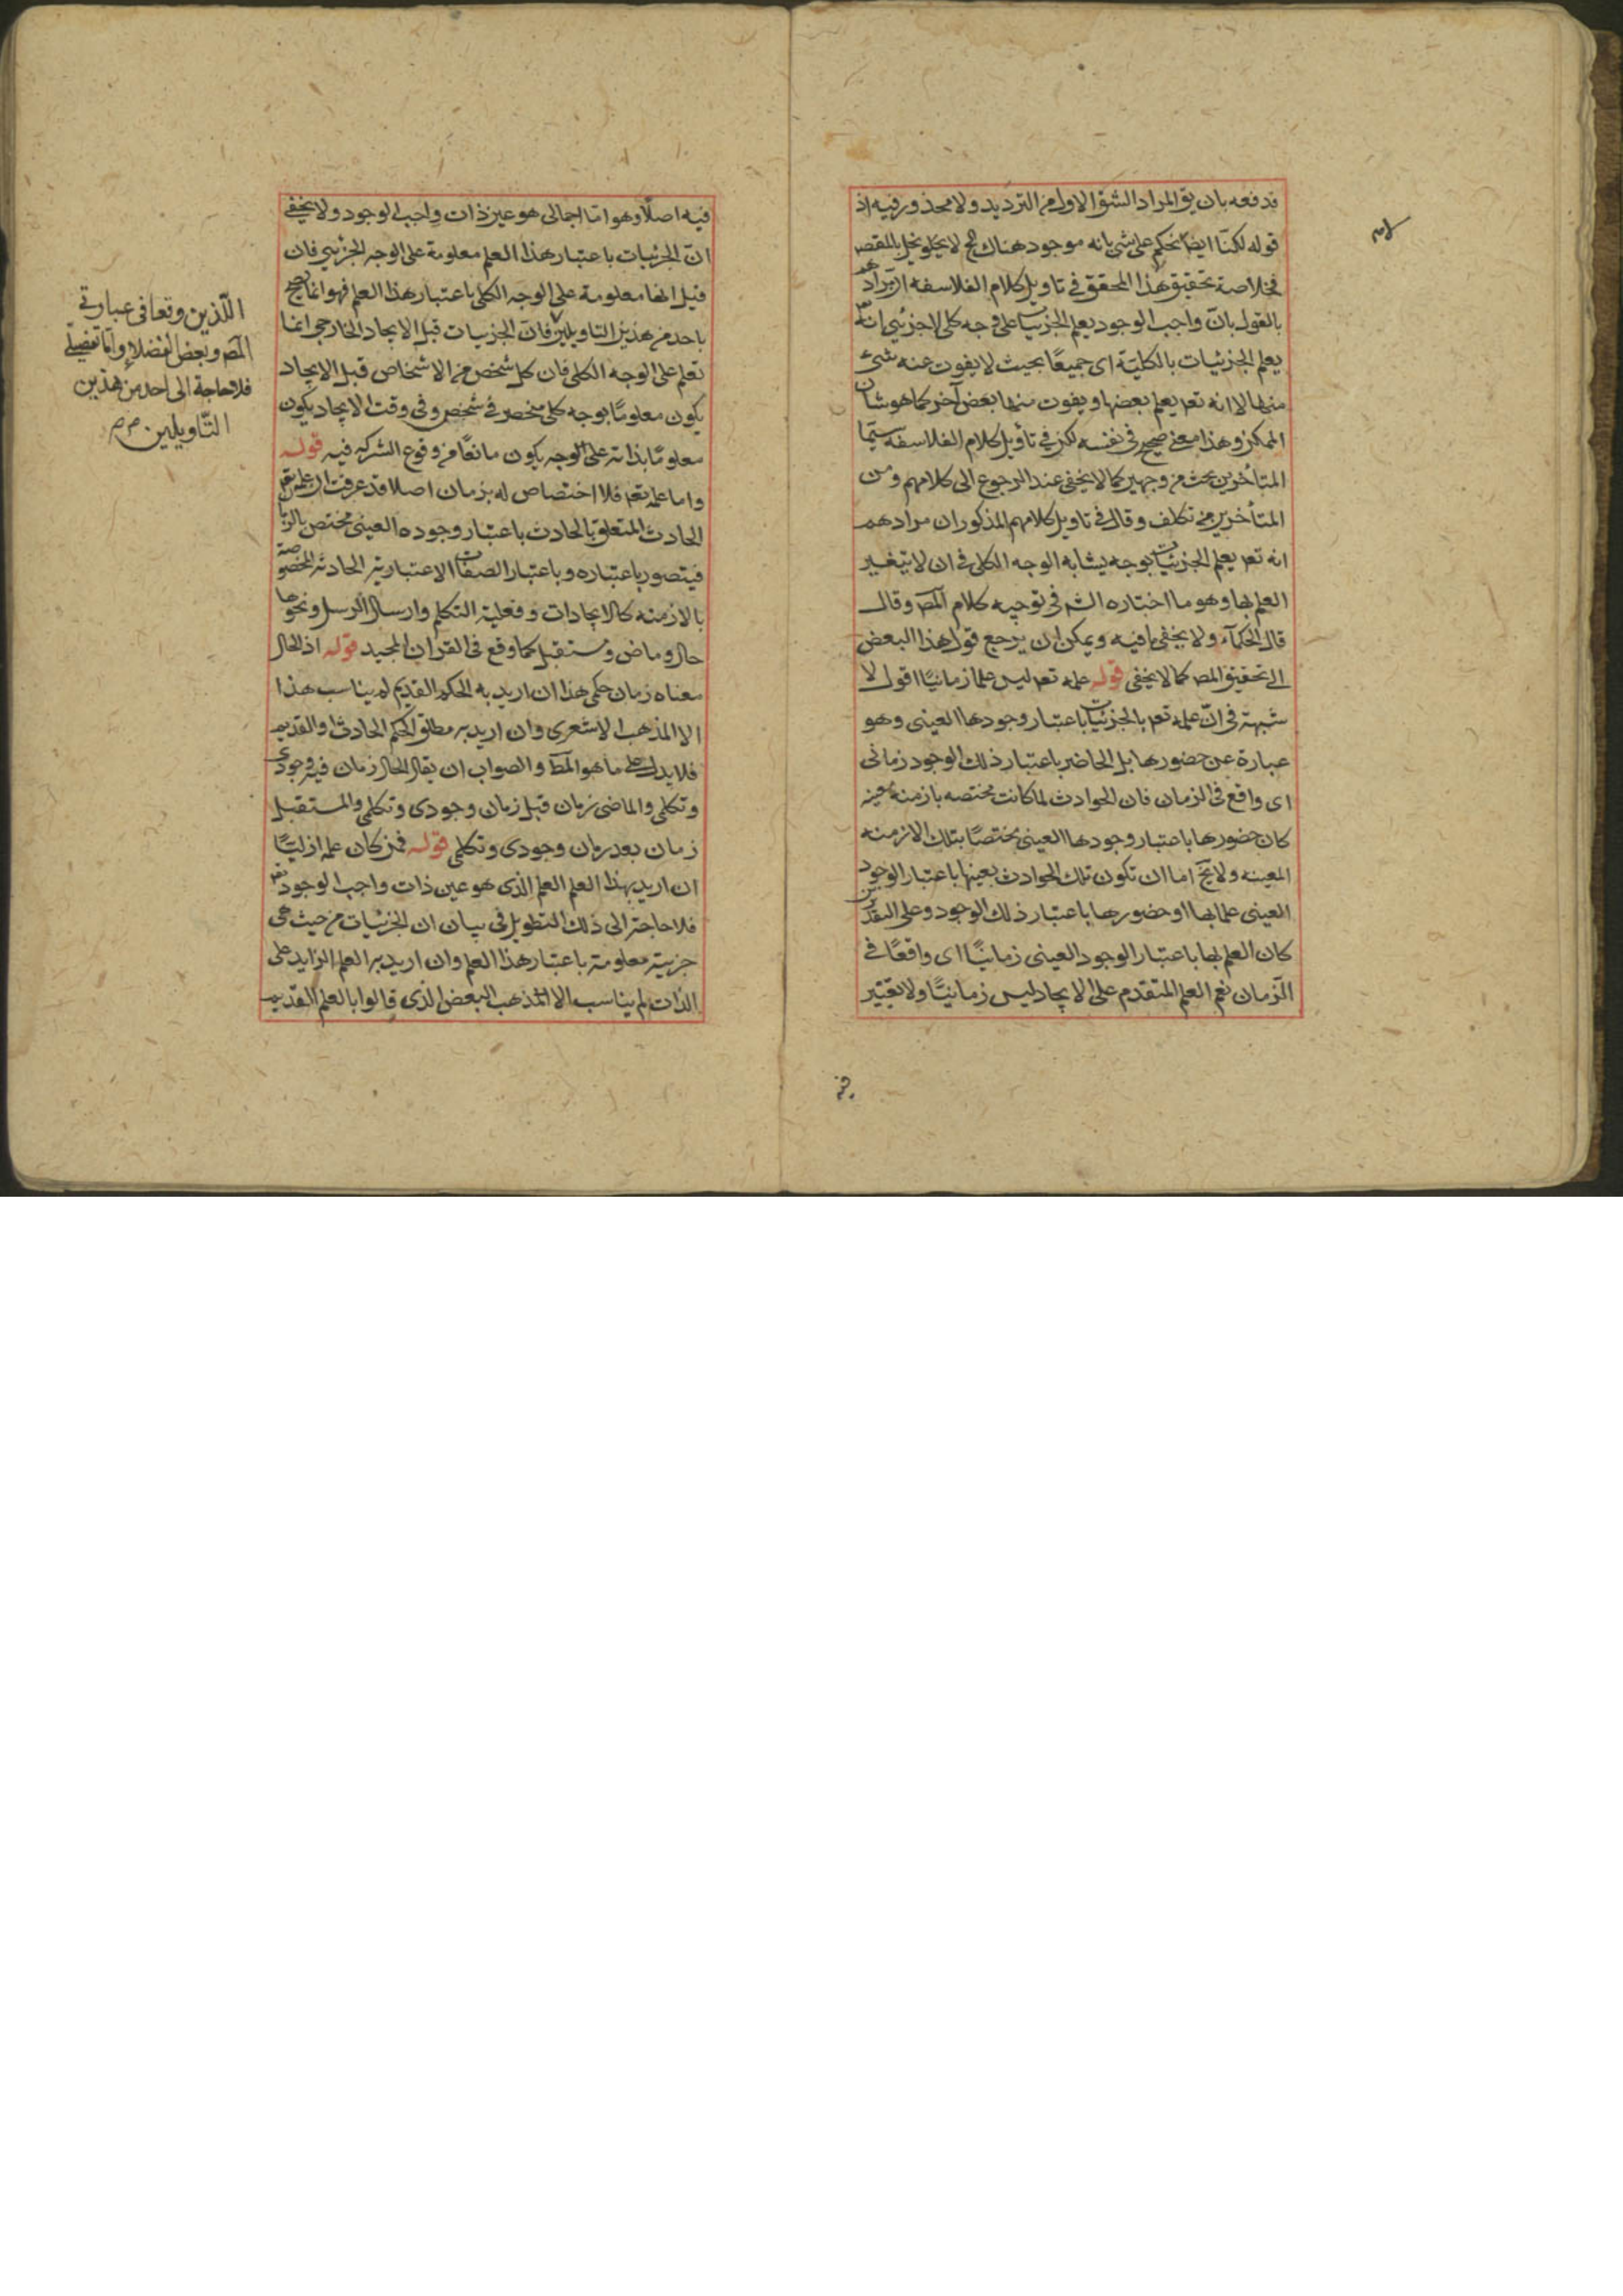 فدفعه بان يق المراد الشق الاول من الترديد ولا محذور فيه اذ
قوله لكنا ايضا نحكم على شئ بانه موجود هناك ح لا يخلو نخل بالمقصـ
فخلاصة تحقيق هذا المحقق في تاويل كلام الفلاسفه ان مرادهم
بالقول بان واجب الوجود يعلم الجزئيات على وجه كلى لا جزئى انه تعـ
يعلم الجزئيات بالكلية اى جميعًا بحيث لا يفوت عنه شئ
منها لا انه تعـ يعلم بعضها ويفوت منها بعض آخر كما هو شان
الممكن وهذا معنى صحيح فى نفسه لكن فى تأويل كلام الفلاسفه سيّما
المتأخرين بحث من وجهين كما لا يخفى عند الرجوع الى كلامهم ومن
المتأخرين من تكلف وقال فى تاويل كلامهم المذكور ان مرادهم
انه تعـ يعلم الجزئيات بوجه يشابه الوجه الكلى فى ان لا يتغير
العلم بها وهو ما اختاره الشـ فى توجيه كلام المصـ وقال
قال الحكمآء ولا يخفى ما فيه ويمكن ان يرجع قول هذا البعض
الى تحقيق المصـ كما لا يخفى قوله علمه تعـ ليس علما زمانيًا اقول لا
شبهة فى انّ علمه تعـ بالجزئيات باعتبار وجودها العينى وهو
عبارة عن حضورها بل الحاضر باعتبار ذلك الوجود زمانى
اى واقع فى الزمان فان الحوادث لما كانت مختصه بازمنه معينه
كان حضورها باعتبار وجودها العينى مختصًا بتلك الازمنه
المعينه ولا يخ اما ان تكون تلك الحوادث بعينها باعتبار الوجود
العينى علما بها او حضورها باعتبار ذلك الوجود وعلى التقديرين
كان العلم بها باعتبار الوجود العينى زمانيًّا اى واقعًا فى
الزمان نعم العلم المتقدم على الايجاد ليس زمانيًّا ولا تغيّر
فيه اصلًا وهو امّا اجمالى هو عين ذات واجب الوجود ولا يخفى
انّ الجزئيات باعتبار هذا العلم معلومة على الوجه الجزئى فان
قيل انها معلومة على الوجه الكلى باعتبار هذا العلم فهو انما يصح
باحد من هذين التاويلين فان الجزئيات قبل الايجاد الخارجى انما
تعلم على الوجه الكلى فان كل شخص من الاشخاص قبل الايجاد
يكون معلومًا بوجه كلى منحصر فى شخص وفى وقت الايجاد يكون
معلومًا بذاته على الوجه يكون مانعًا من وقوع الشركه فيه قوله
واما علمه تعـ فلا اختصاص له بزمان اصلا قد عرفت ان علمه تعـ
الحادث المتعلق بالحادث باعتبار وجوده العينى مختص بالزمان
فيتصور باعتباره وباعتبار الصفات الاعتبارية الحادثه المخصوصة
بالازمنه كالايجادات وفعلية التكلم وارسال الرسل ونحوها
حال وماض ومستقبل كما وقع فى القران المجيد قوله اذ الحال
معناه زمان حكمى هذا ان اريد به الحكم القديم لم يناسب هذا
الا المذهب الاشعرى وان اريد به مطلق الحكم الحادث والقديم
فلا يدل على ما هو المط والصواب ان يقال الحال زمان فيه وجودى
وتكلمى والماضى زمان قبل زمان وجودى وتكلمى والمستقبل
زمان بعد زمان وجودى وتكلمى قوله فمن كان علمه ازليًّا
ان اريد بهذا العلم العلم الذى هو عين ذات واجب الوجود تعـ
فلا حاجة الى ذلك التطويل فى بيان ان الجزئيات من حيث هى
جزيية معلومة باعتبار هذا العلم وان اريد به العلم الزايد على
الذات لم يناسب الا المذهب البعض الذى قالوا بالعلم القديم
اللّذين وقعا فى عبارتى
المصـ وبعض الفضلاء وامّا تفصيلى
فلا حاجة الى احد من هذين
التّاويلين